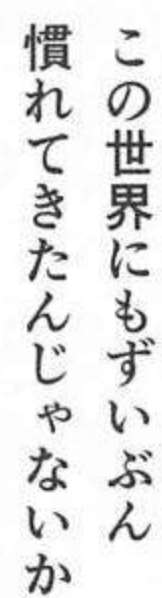 この世界にもずいぶん
慣れてきたんじゃないか